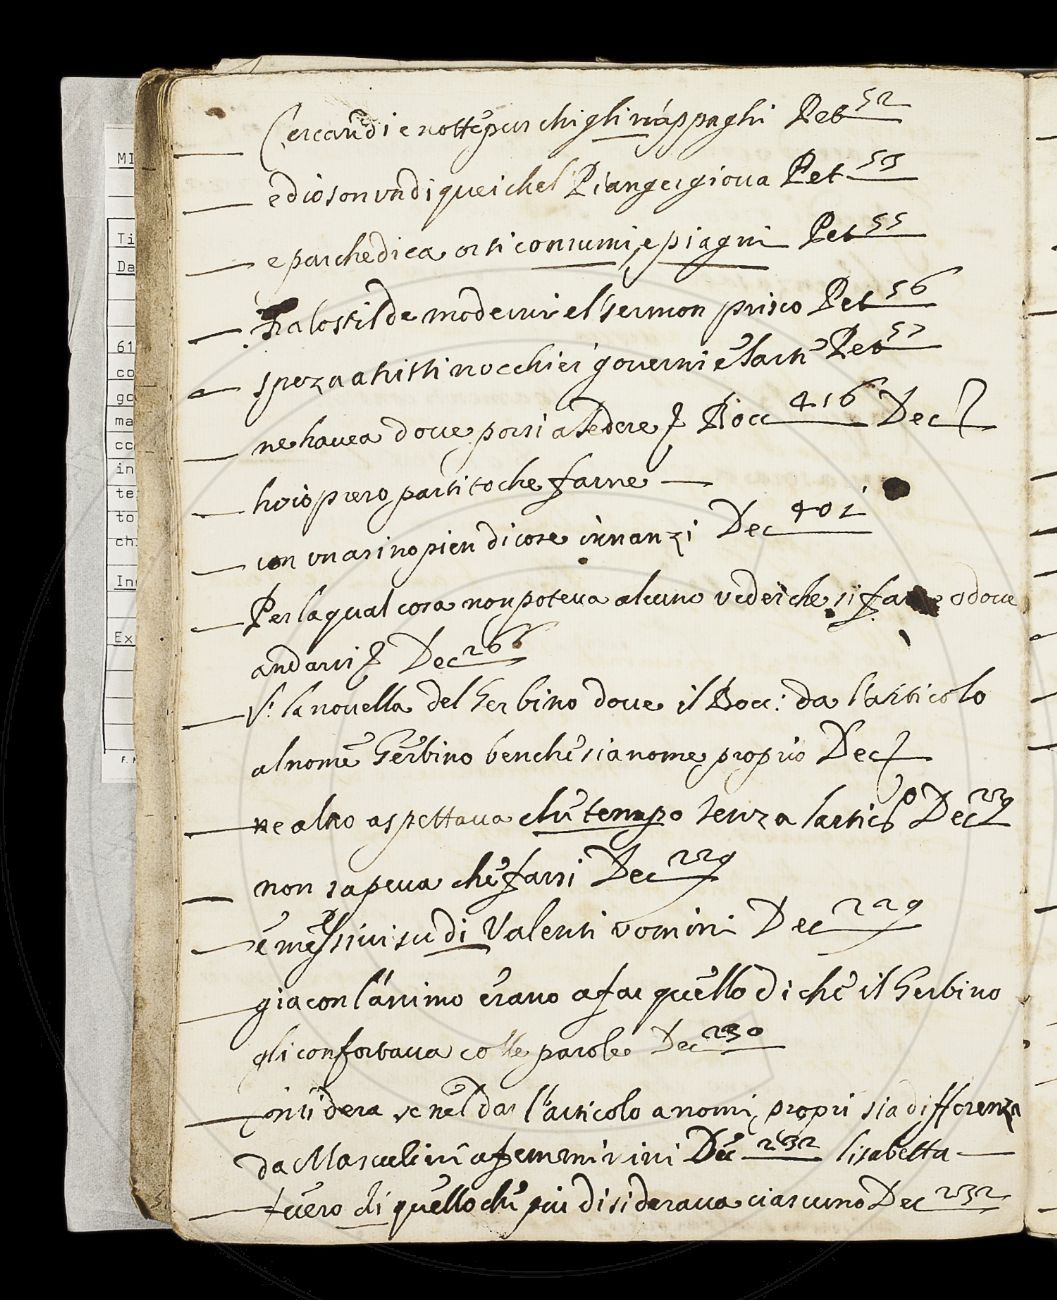 Cercan dì e notte pur chi glin'appaghi Pet 52
ed io son un di quei che'l Pianger giova Pet 53
e parche dica or ti consumi, e piagni Pet 55
Fra lo stil de moderni e'l sermon prisco Pet 56
spezza a tristi nocchier governi e sarte Pet 57
ne havea dove porsi a sedere Bocc 416 Dec
ho io preso partito che farne —
con un asino pien di cose innanzi Dec 402
Per la qual cosa non poteva alcuno vedersi che si fare o dove
andarsi Dec 266
la novella del Gerbino dove il Bocc: da l'articolo
al nome Gerbino benche sia nome proprio Dec
ne altro aspettava che tempo senza l'artic.o Dec 229
non sapeva che farsi Dec 229
e messivi su di Valenti uomini Dec 229
gia con l'animo erano a far quello di che il Gerbino
gli confortava colle parole Dec 230
Considera se nel dar l'articolo a nomi propri sia differenza
da Masculini a femminini Dec 232 lisabetta —
fuero di quello che piu disiderava ciascuno Dec 232
MI
Ti
Da
61
co
ma
in
to
Ex